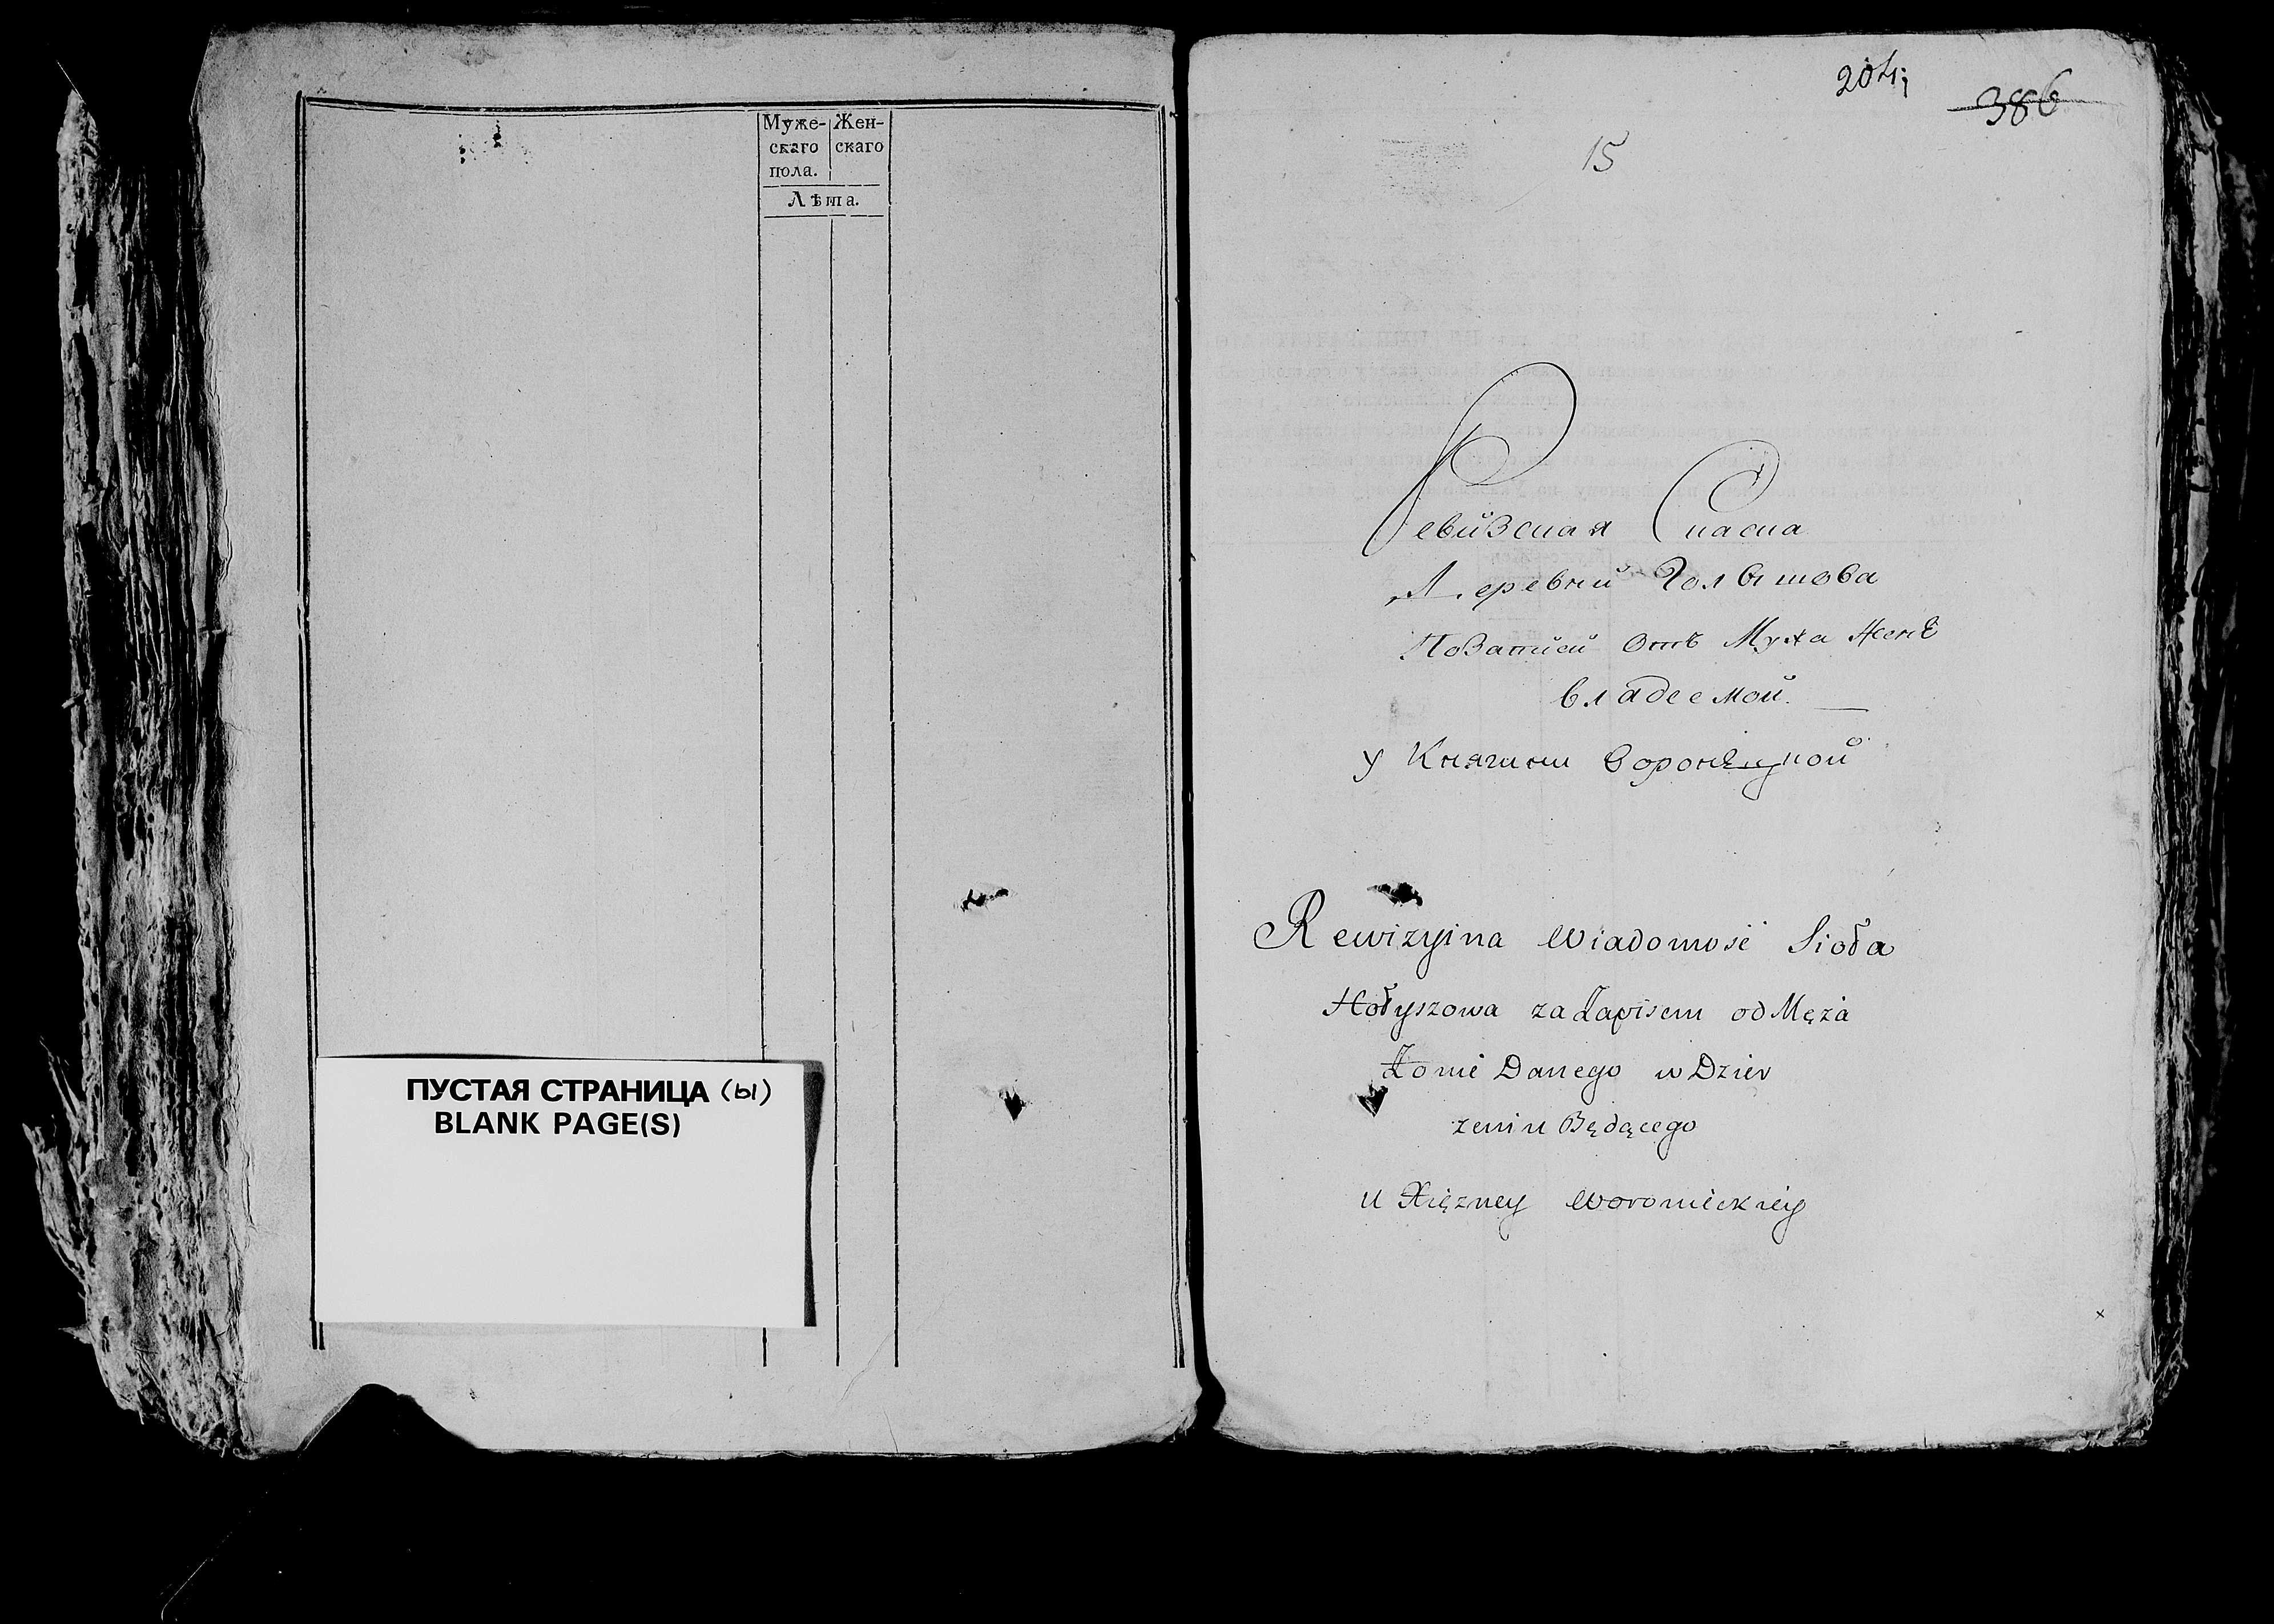 Муже- Жен-
скаго скаго
пола.
Лѣта.
ПУСТАЯ СТРАНИЦА (ы)
BLANK PAGE(S)
204
386
15
Ревизская Скаска
Деревни Голышова
По Записи Отъ Мужа Женѣ
владеемой.
у Княгини Воронѣцкой
Rewizyina Wiadomość Sioła
Hołyszowa za Zapisem od Męża
Żonie Danego w Dzier
żeniu Będącego
u Xięzney Woronieckiey